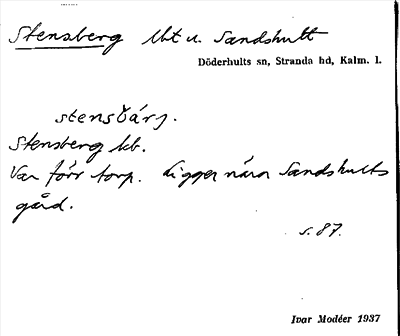 Stensberg lht u. Sandshult
Döderhults sn, Stranda hd, Kalm. l.
stensbárj.
Stensberg lht.
Var förr torp. Ligger nära Sandshults
gård.
s. 87.
Ivar Modéer 1937